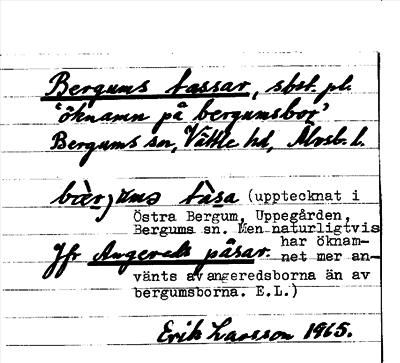 Bergums tassar, sbst. pl.
'öknamn på bergumsbor'
Bergums sn, Vättle hd, Älvsb. l.
bær)ɯms tàsa (upptecknat i
Östra Bergum, Uppegården,
Bergums sn. Men naturligtvis
har öknam-
Jfr Angereds påsar. net mer an-
vänts av angeredsborna än av
bergumsborna. E.L.)
Erik Larsson 1965.